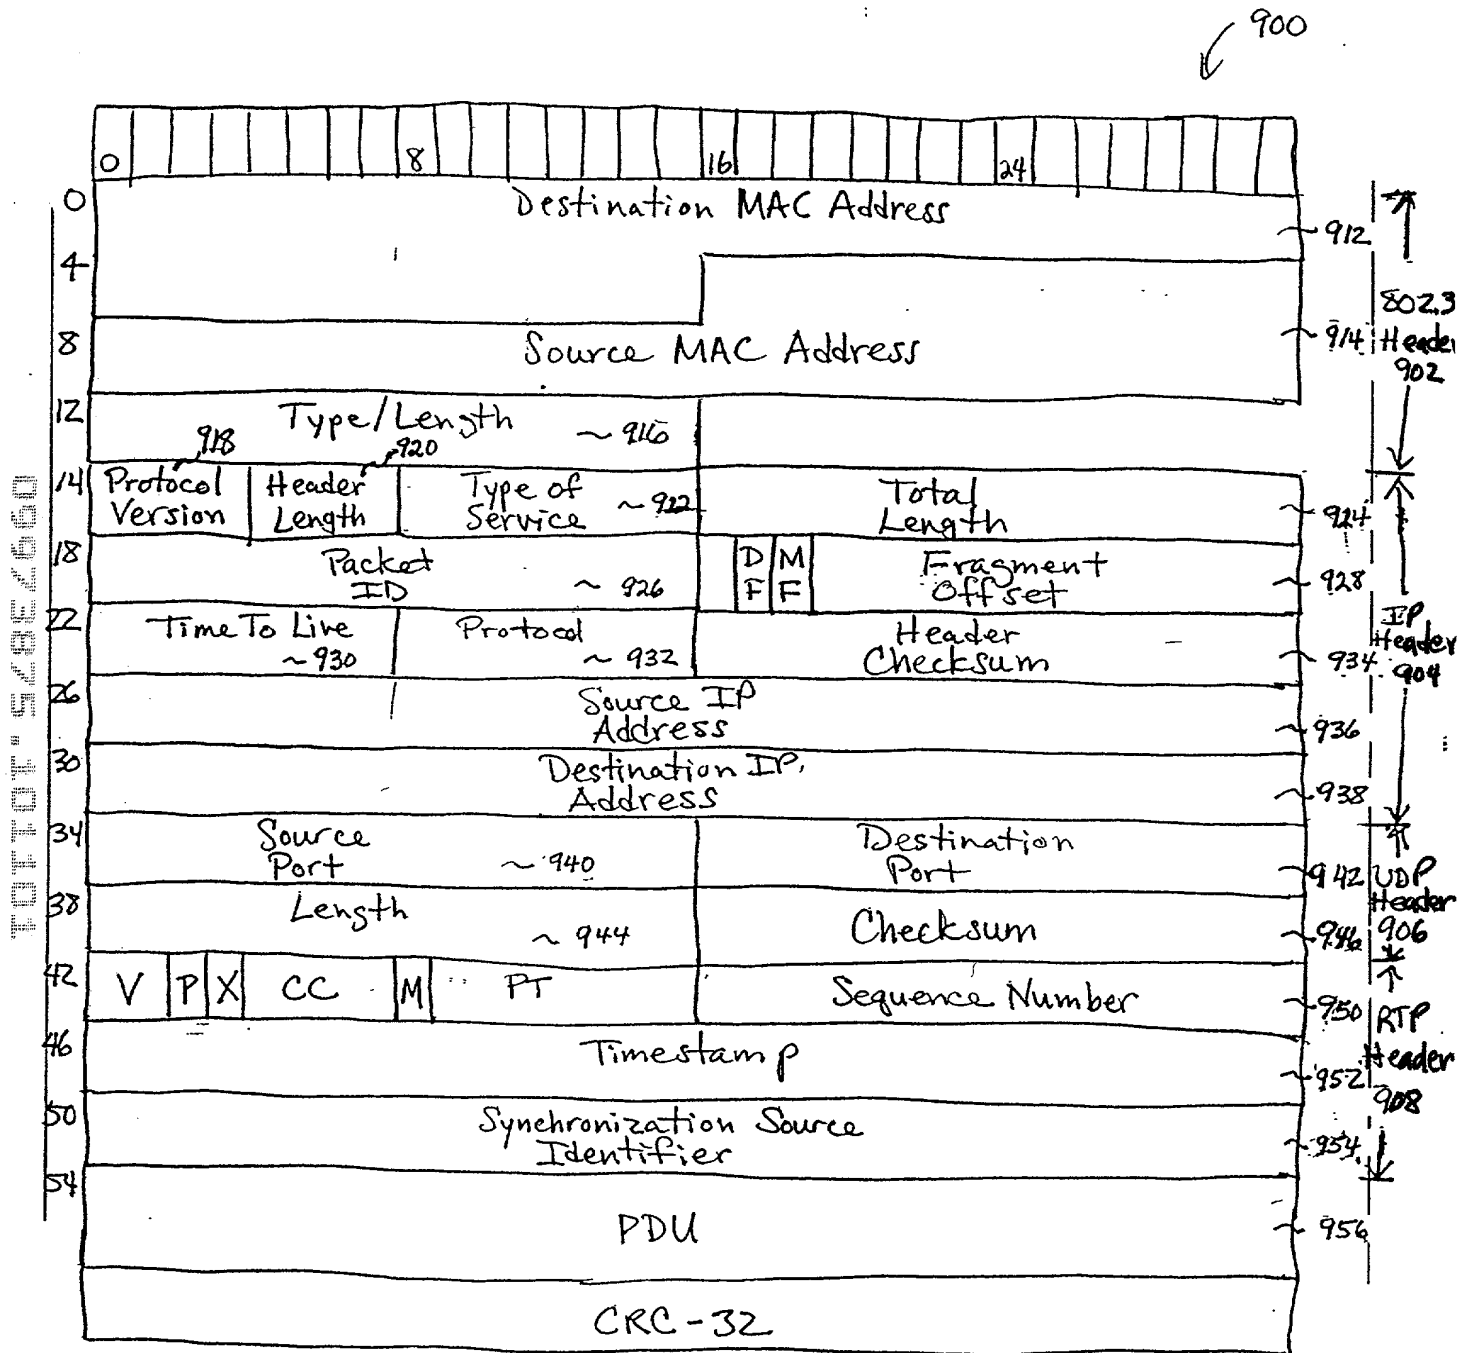 900
0 8 16 24
0 Destination MAC Address 912
4
802.3 Header 902
8 Source MAC Address 914
12 Type/Length 916
918 920
14 Protocol Version Header Length Type of Service 922 Total Length 924
18 Packet ID 926 DF MF Fragment Offset 928
22 Time To Live 930 Protocol 932 Header Checksum 934
IP Header 904
26 Source IP Address 936
30 Destination IP Address 938
34 Source Port 940 Destination Port 942
UDP Header 906
38 Length 944 Checksum 946
42 V P X CC M PT Sequence Number 950
RTP Header 908
46 Timestamp 952
50 Synchronization Source Identifier 954
54
PDU 956
CRC-32